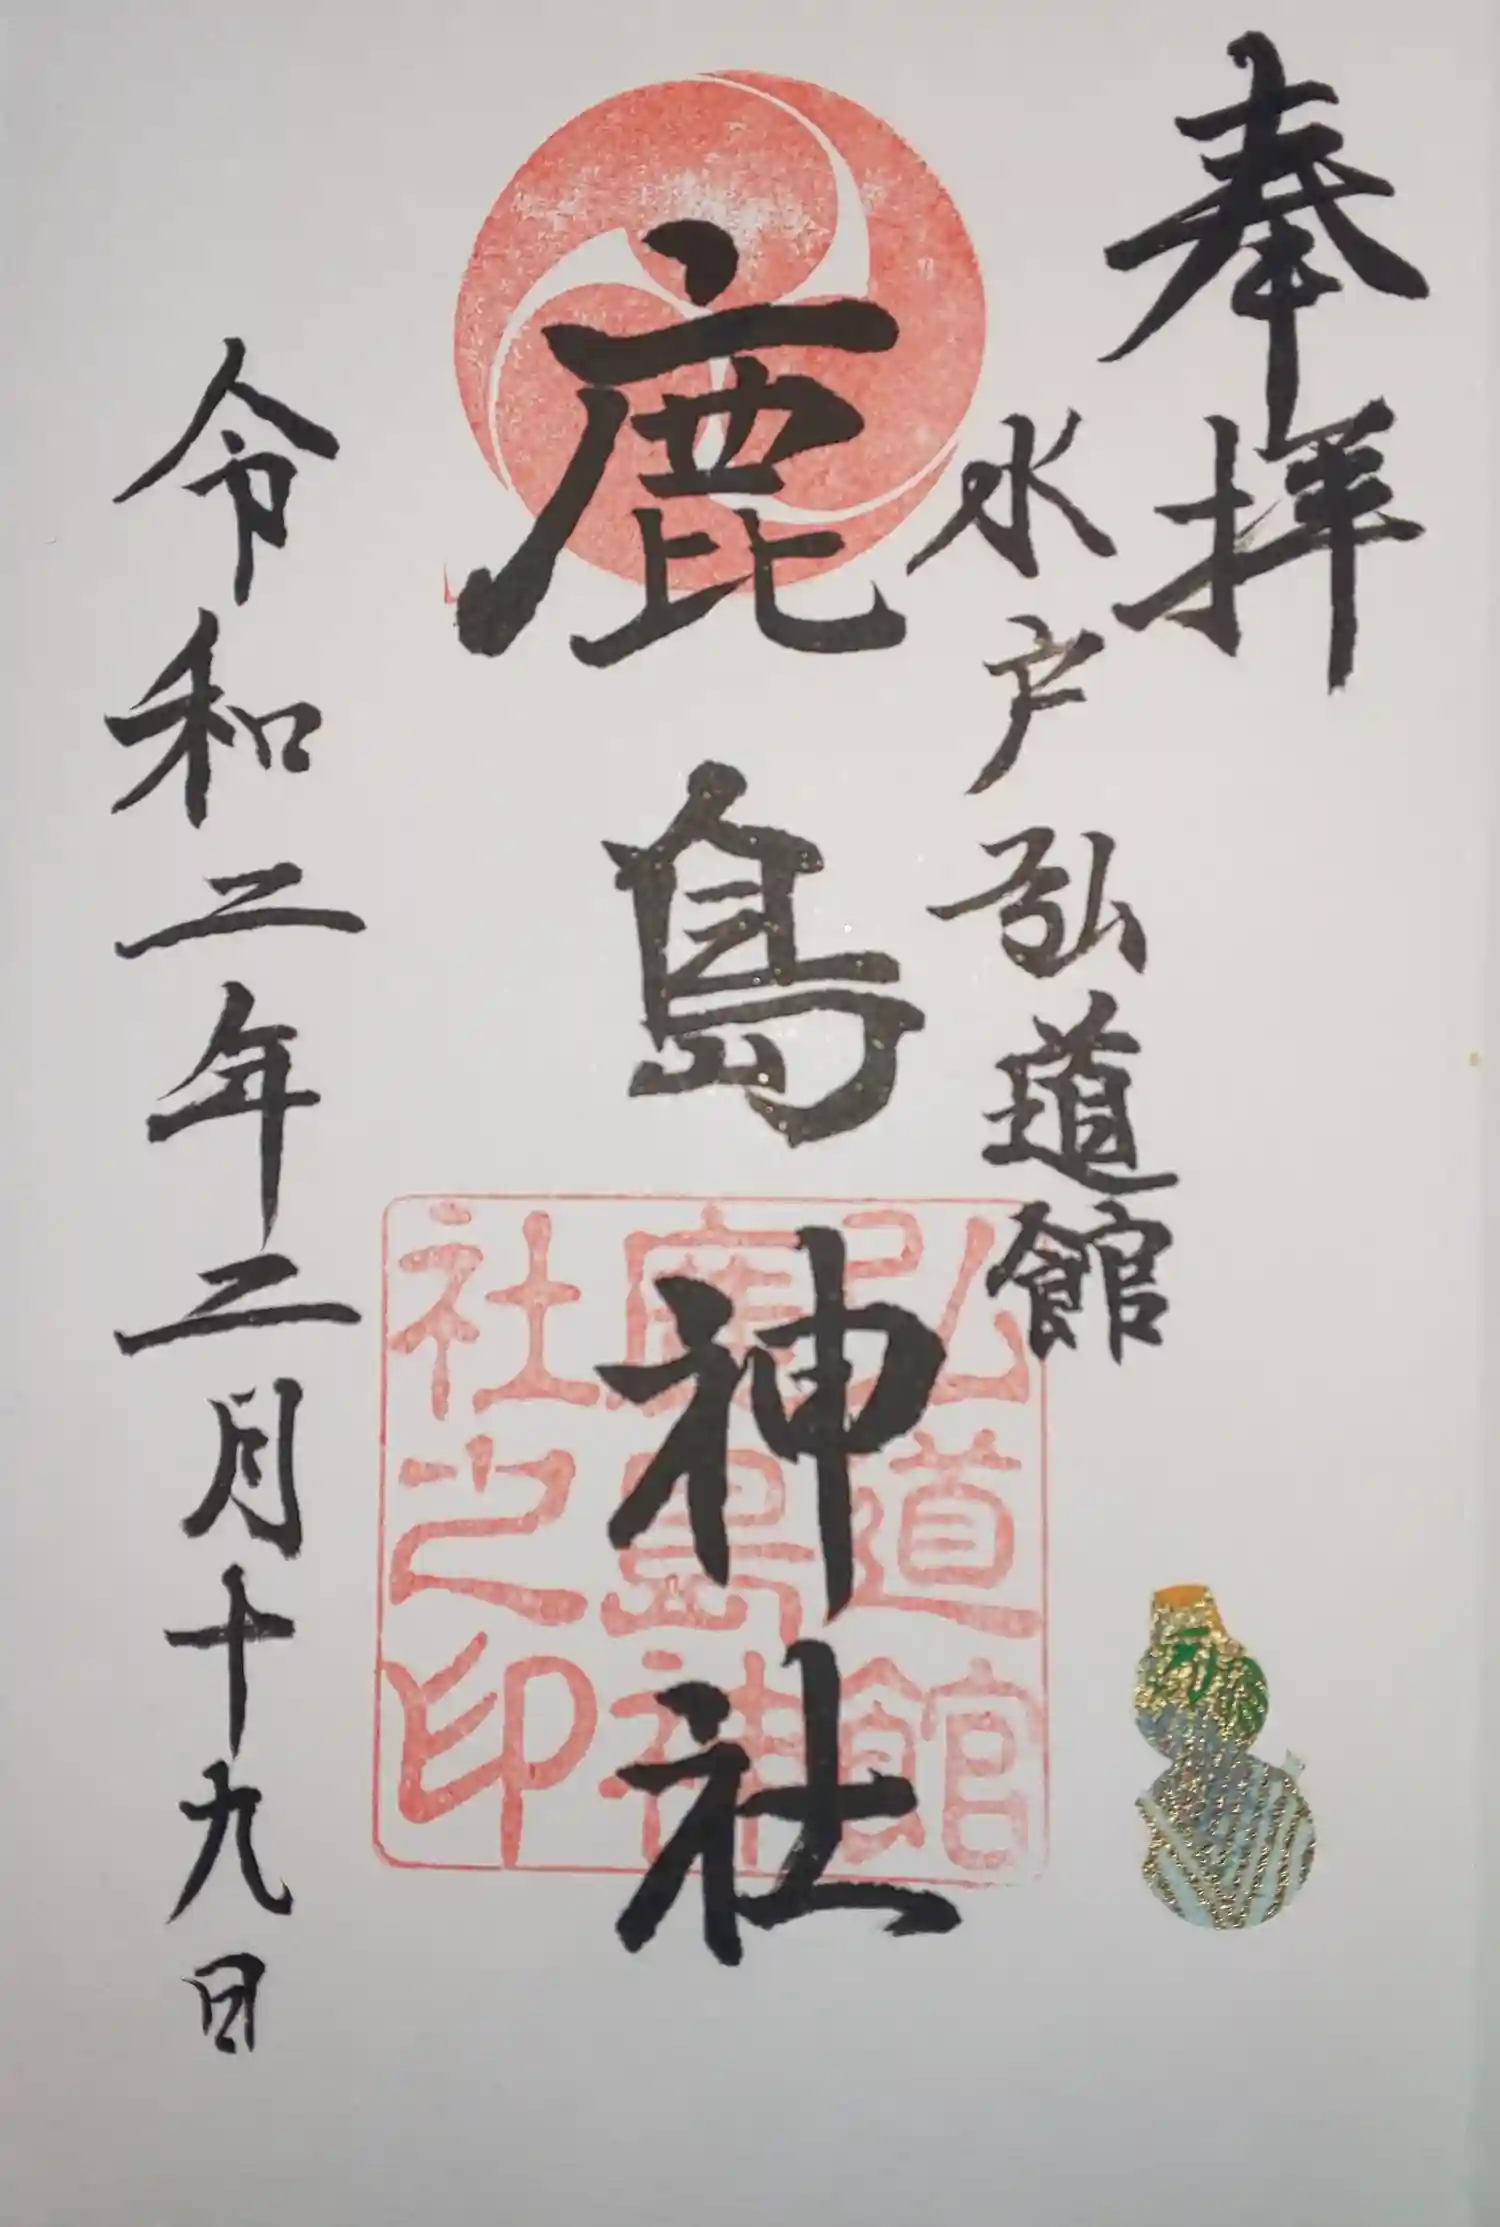 奉拝
水戸弘道館
鹿島神社
弘道館
鹿島神
社之印
令和二年二月十九日